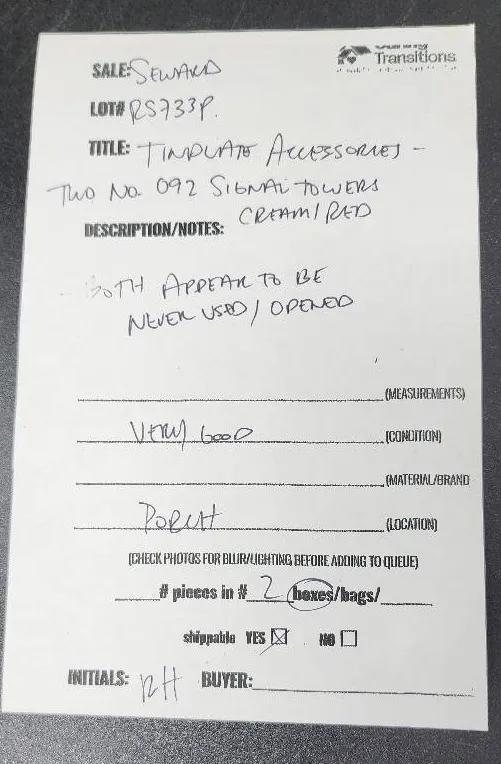 Transitions
SALE: SEWARD
LOT# RS733P.
TITLE: TINPLATE ACCESSORIES -
TWO NO. 092 SIGNAL TOWERS
CREAM/RED
DESCRIPTION/NOTES:
- BOTH APPEAR TO BE
NEVER USED/OPENED
(MEASUREMENTS)
VERY GOOD (CONDITION)
(MATERIAL/BRAND
PORCH (LOCATION)
(CHECK PHOTOS FOR BLUR/LIGHTING BEFORE ADDING TO QUEUE)
____# pieces in # 2 boxes/bags/____
shippable YES ☒ NO ☐
INITIALS: RH BUYER: